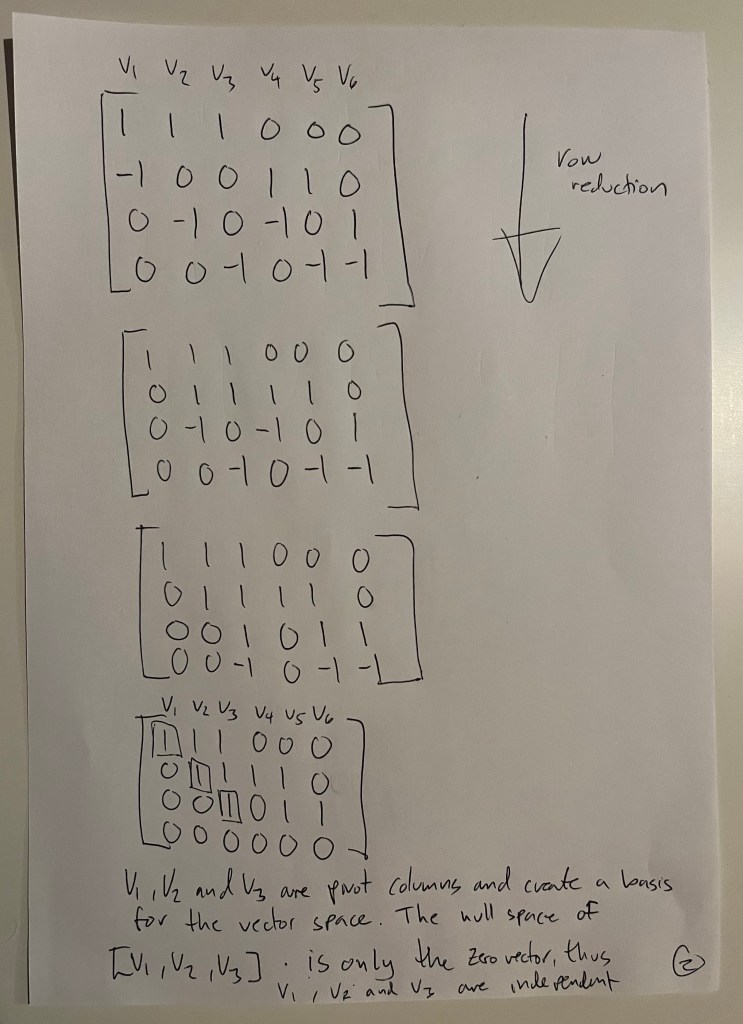 V1 V2 V3 V4 V5 V6
1 1 1 0 0 0
-1 0 0 1 1 0
0 -1 0 -1 0 1
0 0 -1 0 -1 -1
row
reduction
1 1 1 0 0 0
0 1 1 1 1 0
0 -1 0 -1 0 1
0 0 -1 0 -1 -1
1 1 1 0 0 0
0 1 1 1 1 0
0 0 1 0 1 1
0 0 -1 0 -1 -1
V1 V2 V3 V4 V5 V6
1 1 1 0 0 0
0 1 1 1 1 0
0 0 1 0 1 1
0 0 0 0 0 0
V1, V2 and V3 are pivot columns and create a basis
for the vector space. The null space of
[V1, V2, V3] · is only the zero vector, thus
V1, V2 and V3 are independent
2